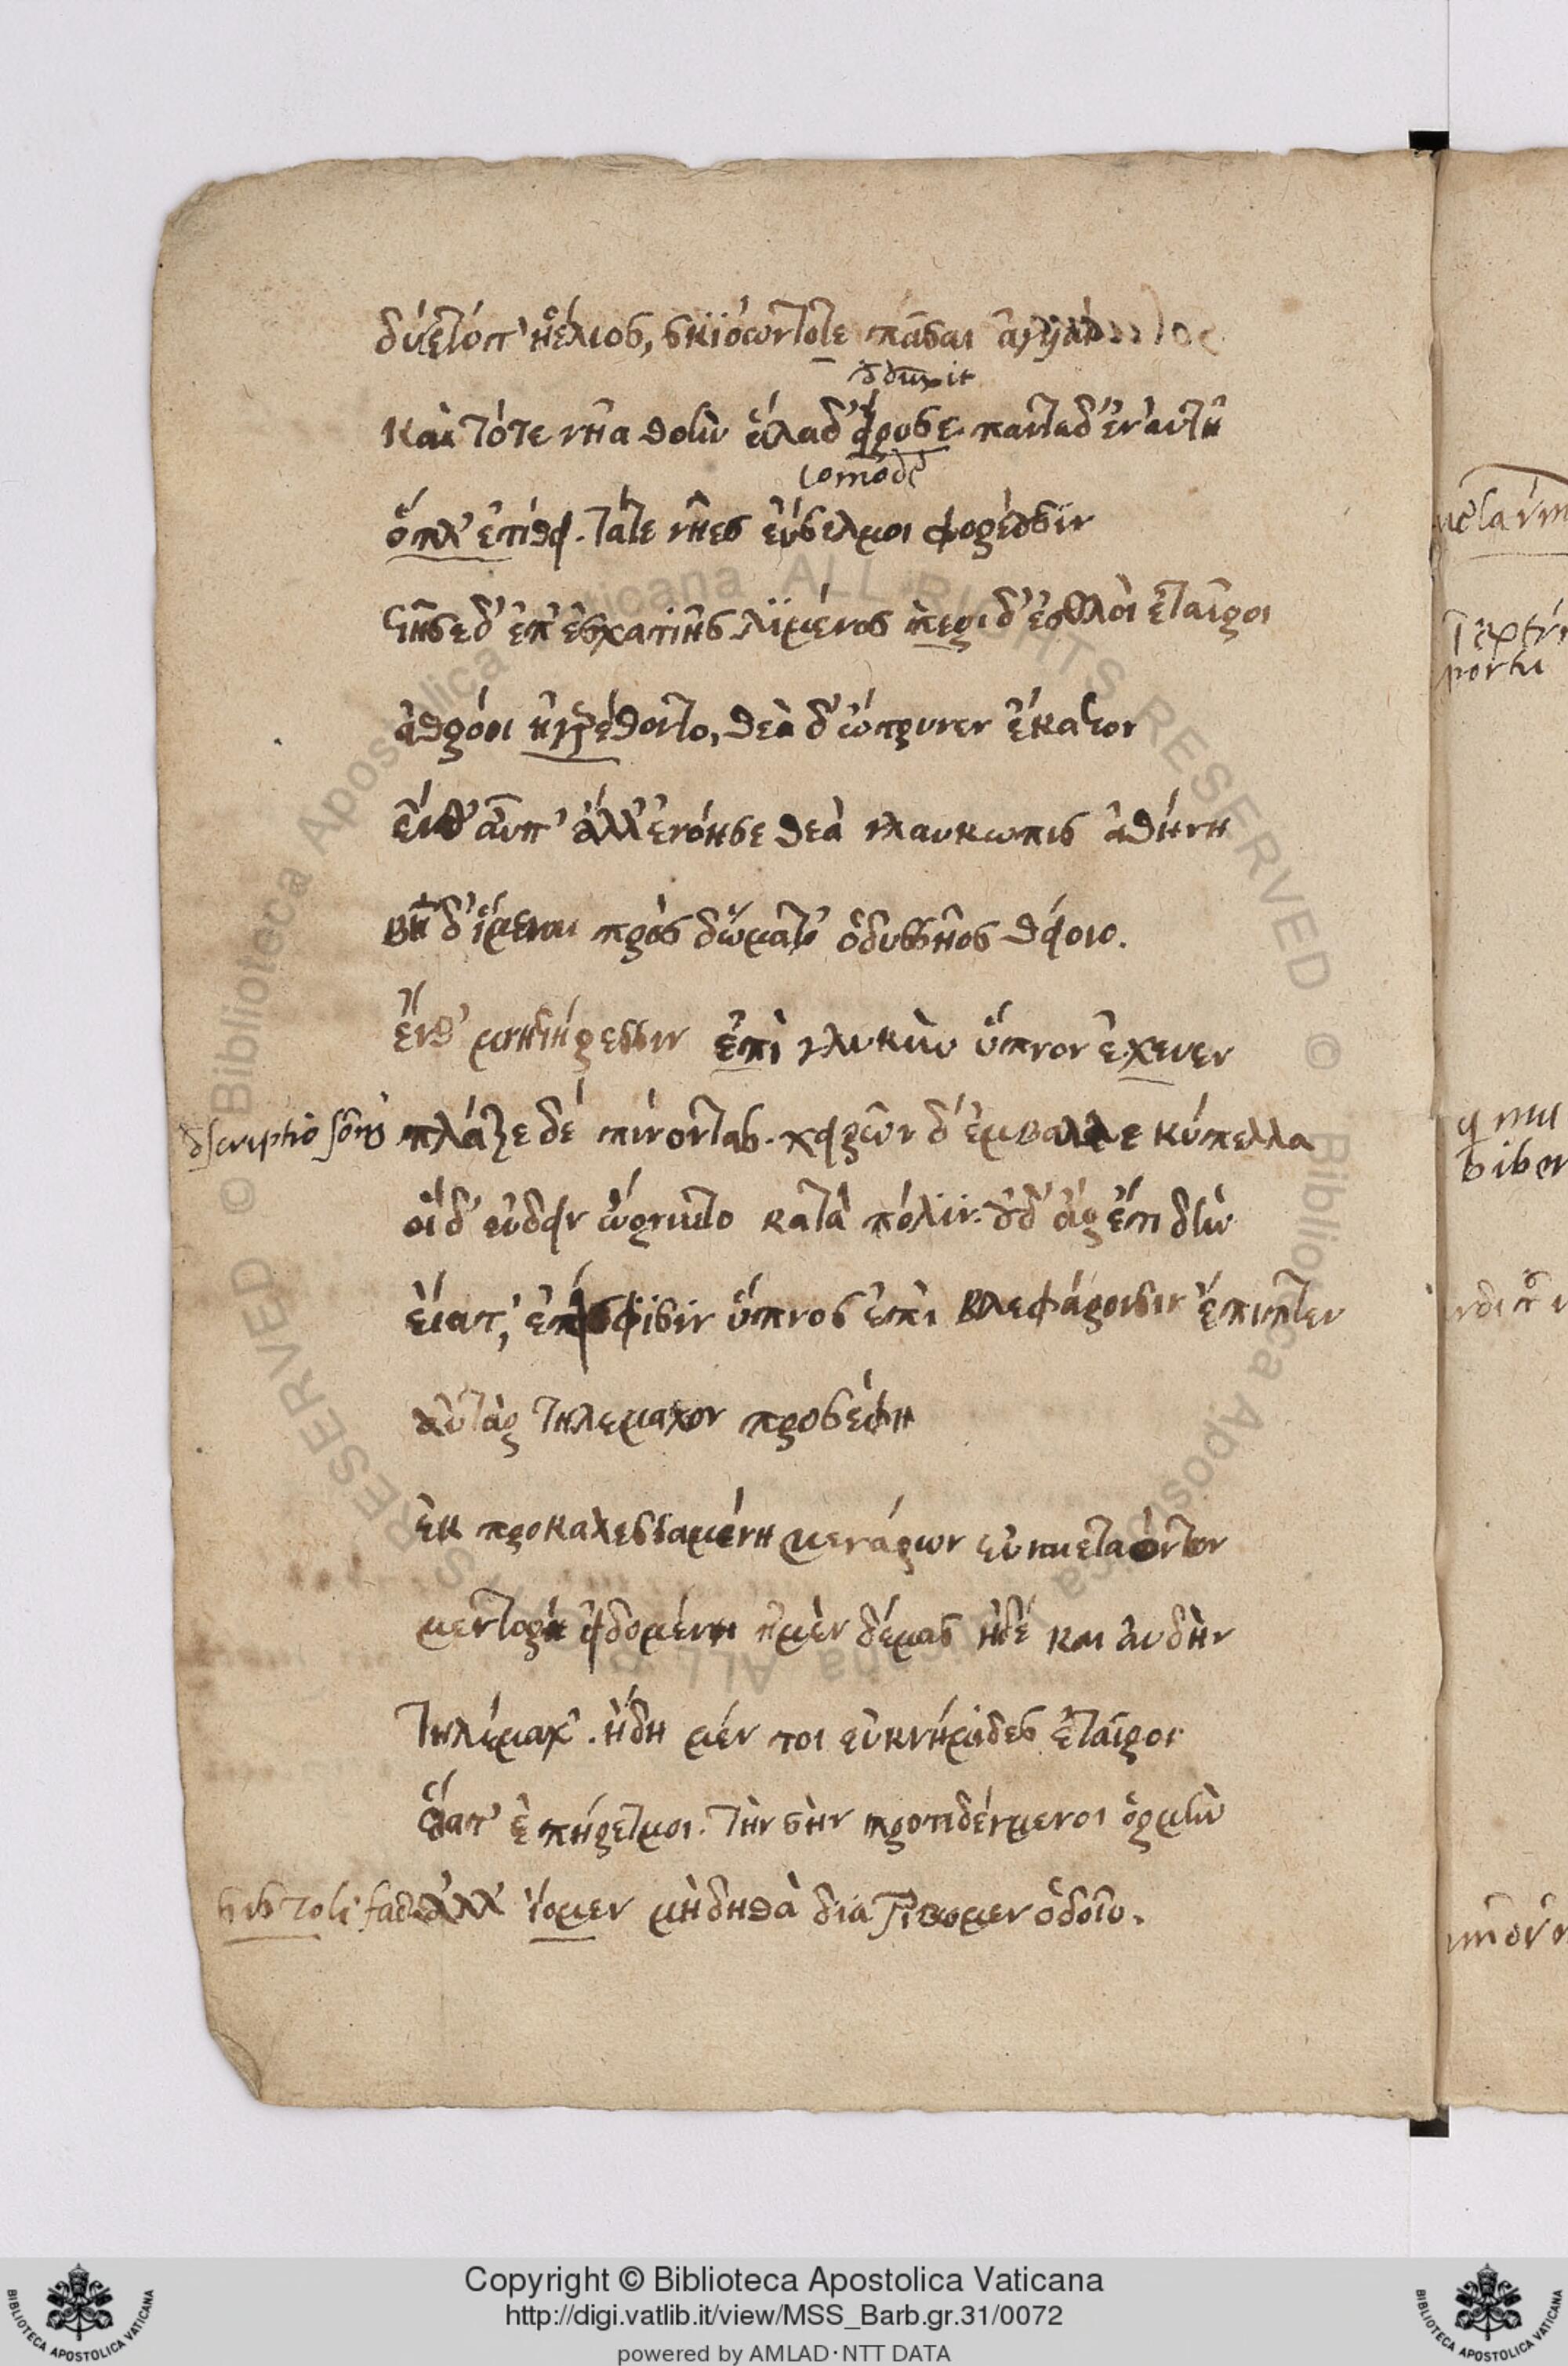 δύετό τ' ἠέλιος, σκϊόωντότε πᾶσαι ἀγυιαὶ
δduxit
Καὶ τότε νῆα θοὴν ἅλαδ' εἴρυσε παντα δ' ἐν αυτῆ
ὅπλ' ἐτίθει. τάτε νῆες ἐΰσελμοι φορέουσϊν
στῆσε δ' ἐπ' ἐσχατιῆς λϊμένος περι δ' ἐσθλὸι ἑταῖροι
ἀθρόοι ἠγερέθοντο, θεὰ δ' ὤτρυνεν ἕκαστον
ἔνθ' αὖτ' ἄλλ' ἐνόησε θεὰ γλαυκωπις ἀθήνη
βῆ δ' ἴμεναι πρὸς δώματ' ὀδυσσῆος θείοιο.
ἔνθ' μνηστήρεσσιν ἐπὶ γλυκὺν ὕπνον ἔχευεν
πλάζε δὲ πίνοντας. χειρῶν δ' ἔμβαλλε κύπελλα
οἱ δ' εὐδειν ὤρνυντο κατὰ πόλϊν. οὐδ' ἀρ ἔτι δὴν
εἵατ', ἐπεὶ σφϊσϊν ὕπνος ἐπὶ βλεφάροισιν ἔπιπτεν
αὐτὰρ Τηλεμαχον προσέφη
ἐκ προκαλεσσαμένη μεγάρων εὐναιεταόντων
μεντορι εἰδομένη ἠμὲν δέμας ἠδὲ και ἀυδὴν
Τηλέμαχ'. ἤδη μέν τοι εὐκνήμιδες ἑταῖροι
εἵατ' ἐπήρετμοι. τὴν σὴν προτιδέγμενοι ὁρμὴν
ἀλλ' ἴομεν μὴ δηθὰ διατρίβομεν ὁδοῖο.
Copyright © Biblioteca Apostolica Vaticana
http://digi.vatlib.it/view/MSS_Barb.gr.31/0072
powered by AMLAD·NTT DATA